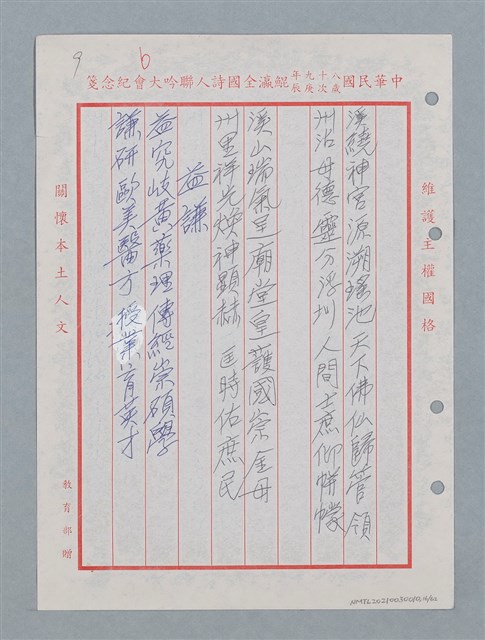 9
6
中華民國八十九年歲次庚辰鯤瀛全國詩人聯吟大會紀念箋
維護主權國格
溪繞神宮源溯瑤池天下佛仙歸管領
州沾母德靈 浮圳人間士庶仰帡幪
溪山瑞氣呈廟堂皇護國崇金母
州里祥光煥神顯赫 匡時佑庶民
益謙
益究岐黃藥理傳經崇碩學
謙研歐美醫方授業育英才
關懷本土人文
教育部贈